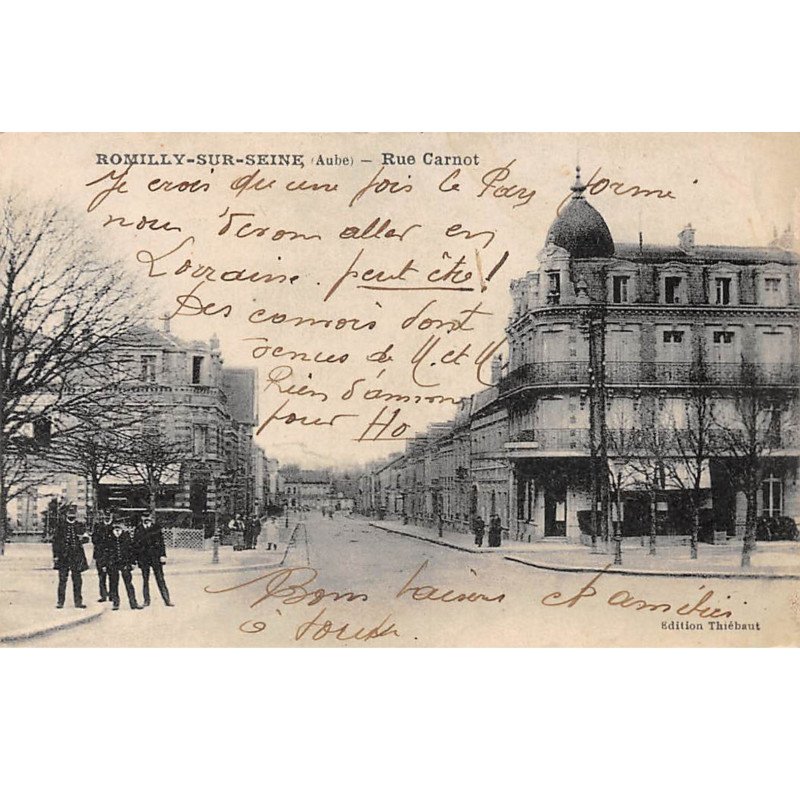 ROMILLY-SUR-SEINE, (Aube) — Rue Carnot
Je crois qu'une fois le Parc formé
nous devons aller en
Lorraine. peut être!
Des camions dont
de M et M
Rien d'
pour
Bons baisers et amitiés
à toutes.
Edition Thiébaut